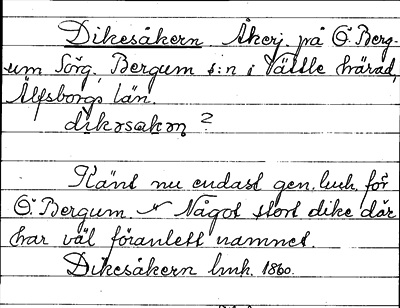 Dikesåkern. Åkerj. på Ö. Berg-
um Sörg. Bergum s:n i Vättle härad,
Älfsborgs län.
dikəsakən ?
Känt nu endast gen. lmh. för
Ö. Bergum. Något stort dike där
har väl föranlett namnet.
Dikesåkern lmh. 1860.